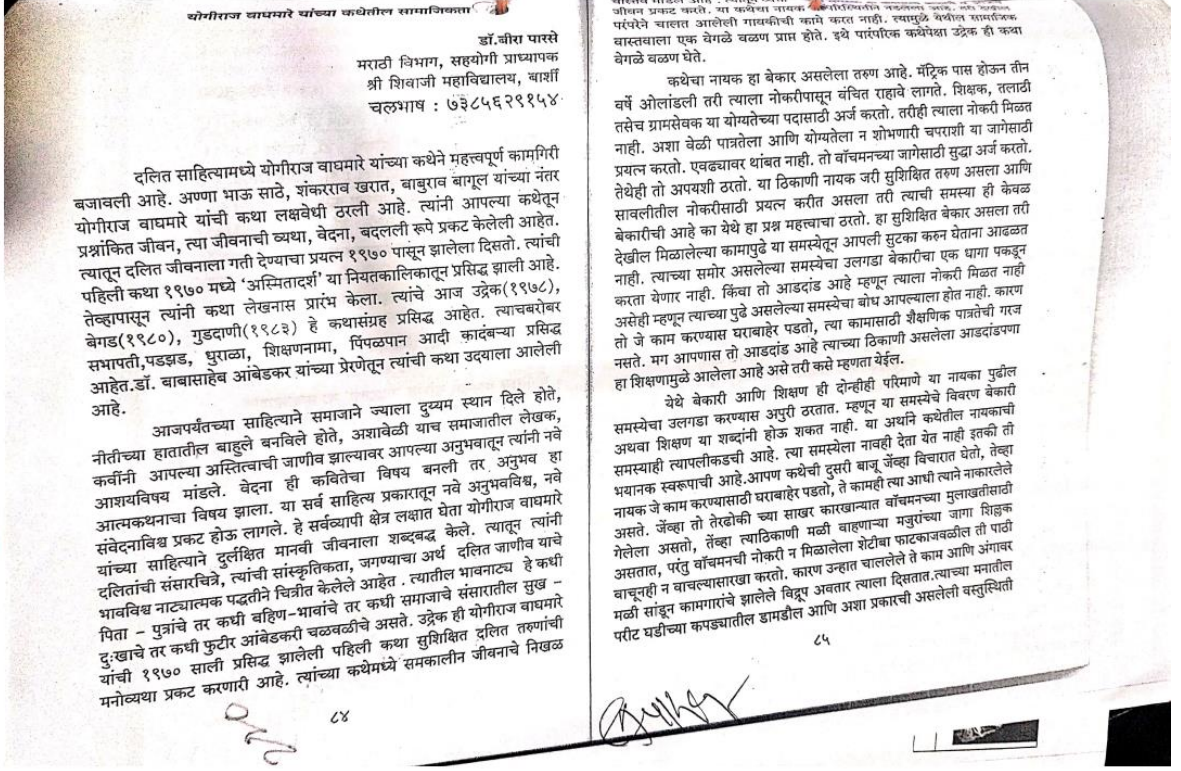 योगीराज वाघमारे यांच्या कथेतील सामाजिकता
डॉ.बीरा पारसे
मराठी विभाग, सहयोगी प्राध्यापक
श्री शिवाजी महाविद्यालय, बार्शी
चलभाष : ७३८५६२९१५४
दलित साहित्यामध्ये योगीराज वाघमारे यांच्या कथेने महत्त्वपूर्ण कामगिरी
बजावली आहे. अण्णा भाऊ साठे, शंकरराव खरात, बाबुराव बागूल यांच्या नंतर
योगीराज वाघमारे यांची कथा लक्षवेधी ठरली आहे. त्यांनी आपल्या कथेतून
प्रश्नांकित जीवन, त्या जीवनाची व्यथा, वेदना, बदलली रूपे प्रकट केलेली आहेत.
त्यातून दलित जीवनाला गती देण्याचा प्रयत्न १९७० पासून झालेला दिसतो. त्यांची
पहिली कथा १९७० मध्ये ‘अस्मितादर्श’ या नियतकालिकातून प्रसिद्ध झाली आहे.
तेव्हापासून त्यांनी कथा लेखनास प्रारंभ केला. त्यांचे आज उद्रेक(१९७८),
बेगड(१९८०), गुडदाणी(१९८३) हे कथासंग्रह प्रसिद्ध आहेत. त्याचबरोबर
सभापती,पडझड, धुराळा, शिक्षणनामा, पिंपळपान आदी कादंबऱ्या प्रसिद्ध
आहेत.डॉ. बाबासाहेब आंबेडकर यांच्या प्रेरणेतून त्यांची कथा उदयाला आलेली
आहे.
आजपर्यंतच्या साहित्याने समाजाने ज्याला दुय्यम स्थान दिले होते,
नीतीच्या हातातील बाहुले बनविले होते, अशावेळी याच समाजातील लेखक,
कवींनी आपल्या अस्तित्वाची जाणीव झाल्यावर आपल्या अनुभवातून त्यांनी नवे
आशयविषय मांडले. वेदना ही कवितेचा विषय बनली तर अनुभव हा
आत्मकथनाचा विषय झाला. या सर्व साहित्य प्रकारातून नवे अनुभवविश्व, नवे
संवेदनाविश्व प्रकट होऊ लागले. हे सर्वव्यापी क्षेत्र लक्षात घेता योगीराज वाघमारे
यांच्या साहित्याने दुर्लक्षित मानवी जीवनाला शब्दबद्ध केले. त्यातून त्यांनी
दलितांची संसारचित्रे, त्यांची सांस्कृतिकता, जगण्याचा अर्थ दलित जाणीव याचे
भावविश्व नाट्यात्मक पद्धतीने चित्रीत केलेले आहेत . त्यातील भावनाट्य हे कधी
पिता – पुत्रांचे तर कधी बहिण–भावांचे तर कधी समाजाचे संसारातील सुख –
दुःखाचे तर कधी फुटीर आंबेडकरी चळवळीचे असते. उद्रेक ही योगीराज वाघमारे
यांची १९७० साली प्रसिद्ध झालेली पहिली कथा सुशिक्षित दलित तरुणांची
मनोव्यथा प्रकट करणारी आहे. त्यांच्या कथेमध्ये समकालीन जीवनाचे निखळ
८४
जीवन प्रकट करते. या कथेचा नायक
परंपरेने चालत आलेली गायकीची कामे करत नाही. त्यामुळे येथील सामाजिक
वास्तवाला एक वेगळे वळण प्राप्त होते. इथे पारंपरिक कथेपेक्षा उद्रेक ही कथा
वेगळे वळण घेते.
कथेचा नायक हा बेकार असलेला तरुण आहे. मॅट्रिक पास होऊन तीन
वर्षे ओलांडली तरी त्याला नोकरीपासून वंचित राहावे लागते. शिक्षक, तलाठी
तसेच ग्रामसेवक या योग्यतेच्या पदासाठी अर्ज करतो. तरीही त्याला नोकरी मिळत
नाही. अशा वेळी पात्रतेला आणि योग्यतेला न शोभणारी चपराशी या जागेसाठी
प्रयत्न करतो. एवढ्यावर थांबत नाही. तो वॉचमनच्या जागेसाठी सुद्धा अर्ज करतो.
तेथेही तो अपयशी ठरतो. या ठिकाणी नायक जरी सुशिक्षित तरुण असला आणि
सावलीतील नोकरीसाठी प्रयत्न करीत असला तरी त्याची समस्या ही केवळ
बेकारीची आहे का येथे हा प्रश्न महत्त्वाचा ठरतो. हा सुशिक्षित बेकार असला तरी
देखील मिळालेल्या कामापुढे या समस्येतून आपली सुटका करुन घेताना आढळत
नाही. त्याच्या समोर असलेल्या समस्येचा उलगडा बेकारीचा एक धागा पकडून
करता येणार नाही. किंवा तो आडदांड आहे म्हणून त्याला नोकरी मिळत नाही
असेही म्हणून त्याच्या पुढे असलेल्या समस्येचा बोध आपल्याला होत नाही. कारण
तो जे काम करण्यास घराबाहेर पडतो, त्या कामासाठी शैक्षणिक पात्रतेची गरज
नसते. मग आपणास तो आडदांड आहे त्याच्या ठिकाणी असलेला आडदांडपणा
हा शिक्षणामुळे आलेला आहे असे तरी कसे म्हणता येईल.
येथे बेकारी आणि शिक्षण ही दोन्हीही परिमाणे या नायका पुढील
समस्येचा उलगडा करण्यास अपुरी ठरतात. म्हणून या समस्येचे विवरण बेकारी
अथवा शिक्षण या शब्दांनी होऊ शकत नाही. या अर्थाने कथेतील नायकाची
समस्याही त्यापलीकडची आहे. त्या समस्येला नावही देता येत नाही इतकी ती
भयानक स्वरूपाची आहे.आपण कथेची दुसरी बाजू जेंव्हा विचारात घेतो, तेव्हा
नायक जे काम करण्यासाठी घराबाहेर पडतो, ते कामही त्या आधी त्याने नाकारलेले
असते. जेंव्हा तो तेरढोकी च्या साखर कारखान्यात वॉचमनच्या मुलाखतीसाठी
गेलेला असतो, तेंव्हा त्याठिकाणी मळी वाहणाऱ्या मजुरांच्या जागा शिल्लक
असतात, परंतु वॉचमनची नोकरी न मिळालेला शेटीबा फाटकाजवळील ती पाठी
वाचूनही न वाचल्यासारखा करतो. कारण उन्हात चाललेले ते काम आणि अंगावर
मळी सांडून कामगारांचे झालेले विद्रूप अवतार त्याला दिसतात.त्याच्या मनातील
परीट घडीच्या कपड्यातील डामडौल आणि अशा प्रकारची असलेली वस्तुस्थिती
८५